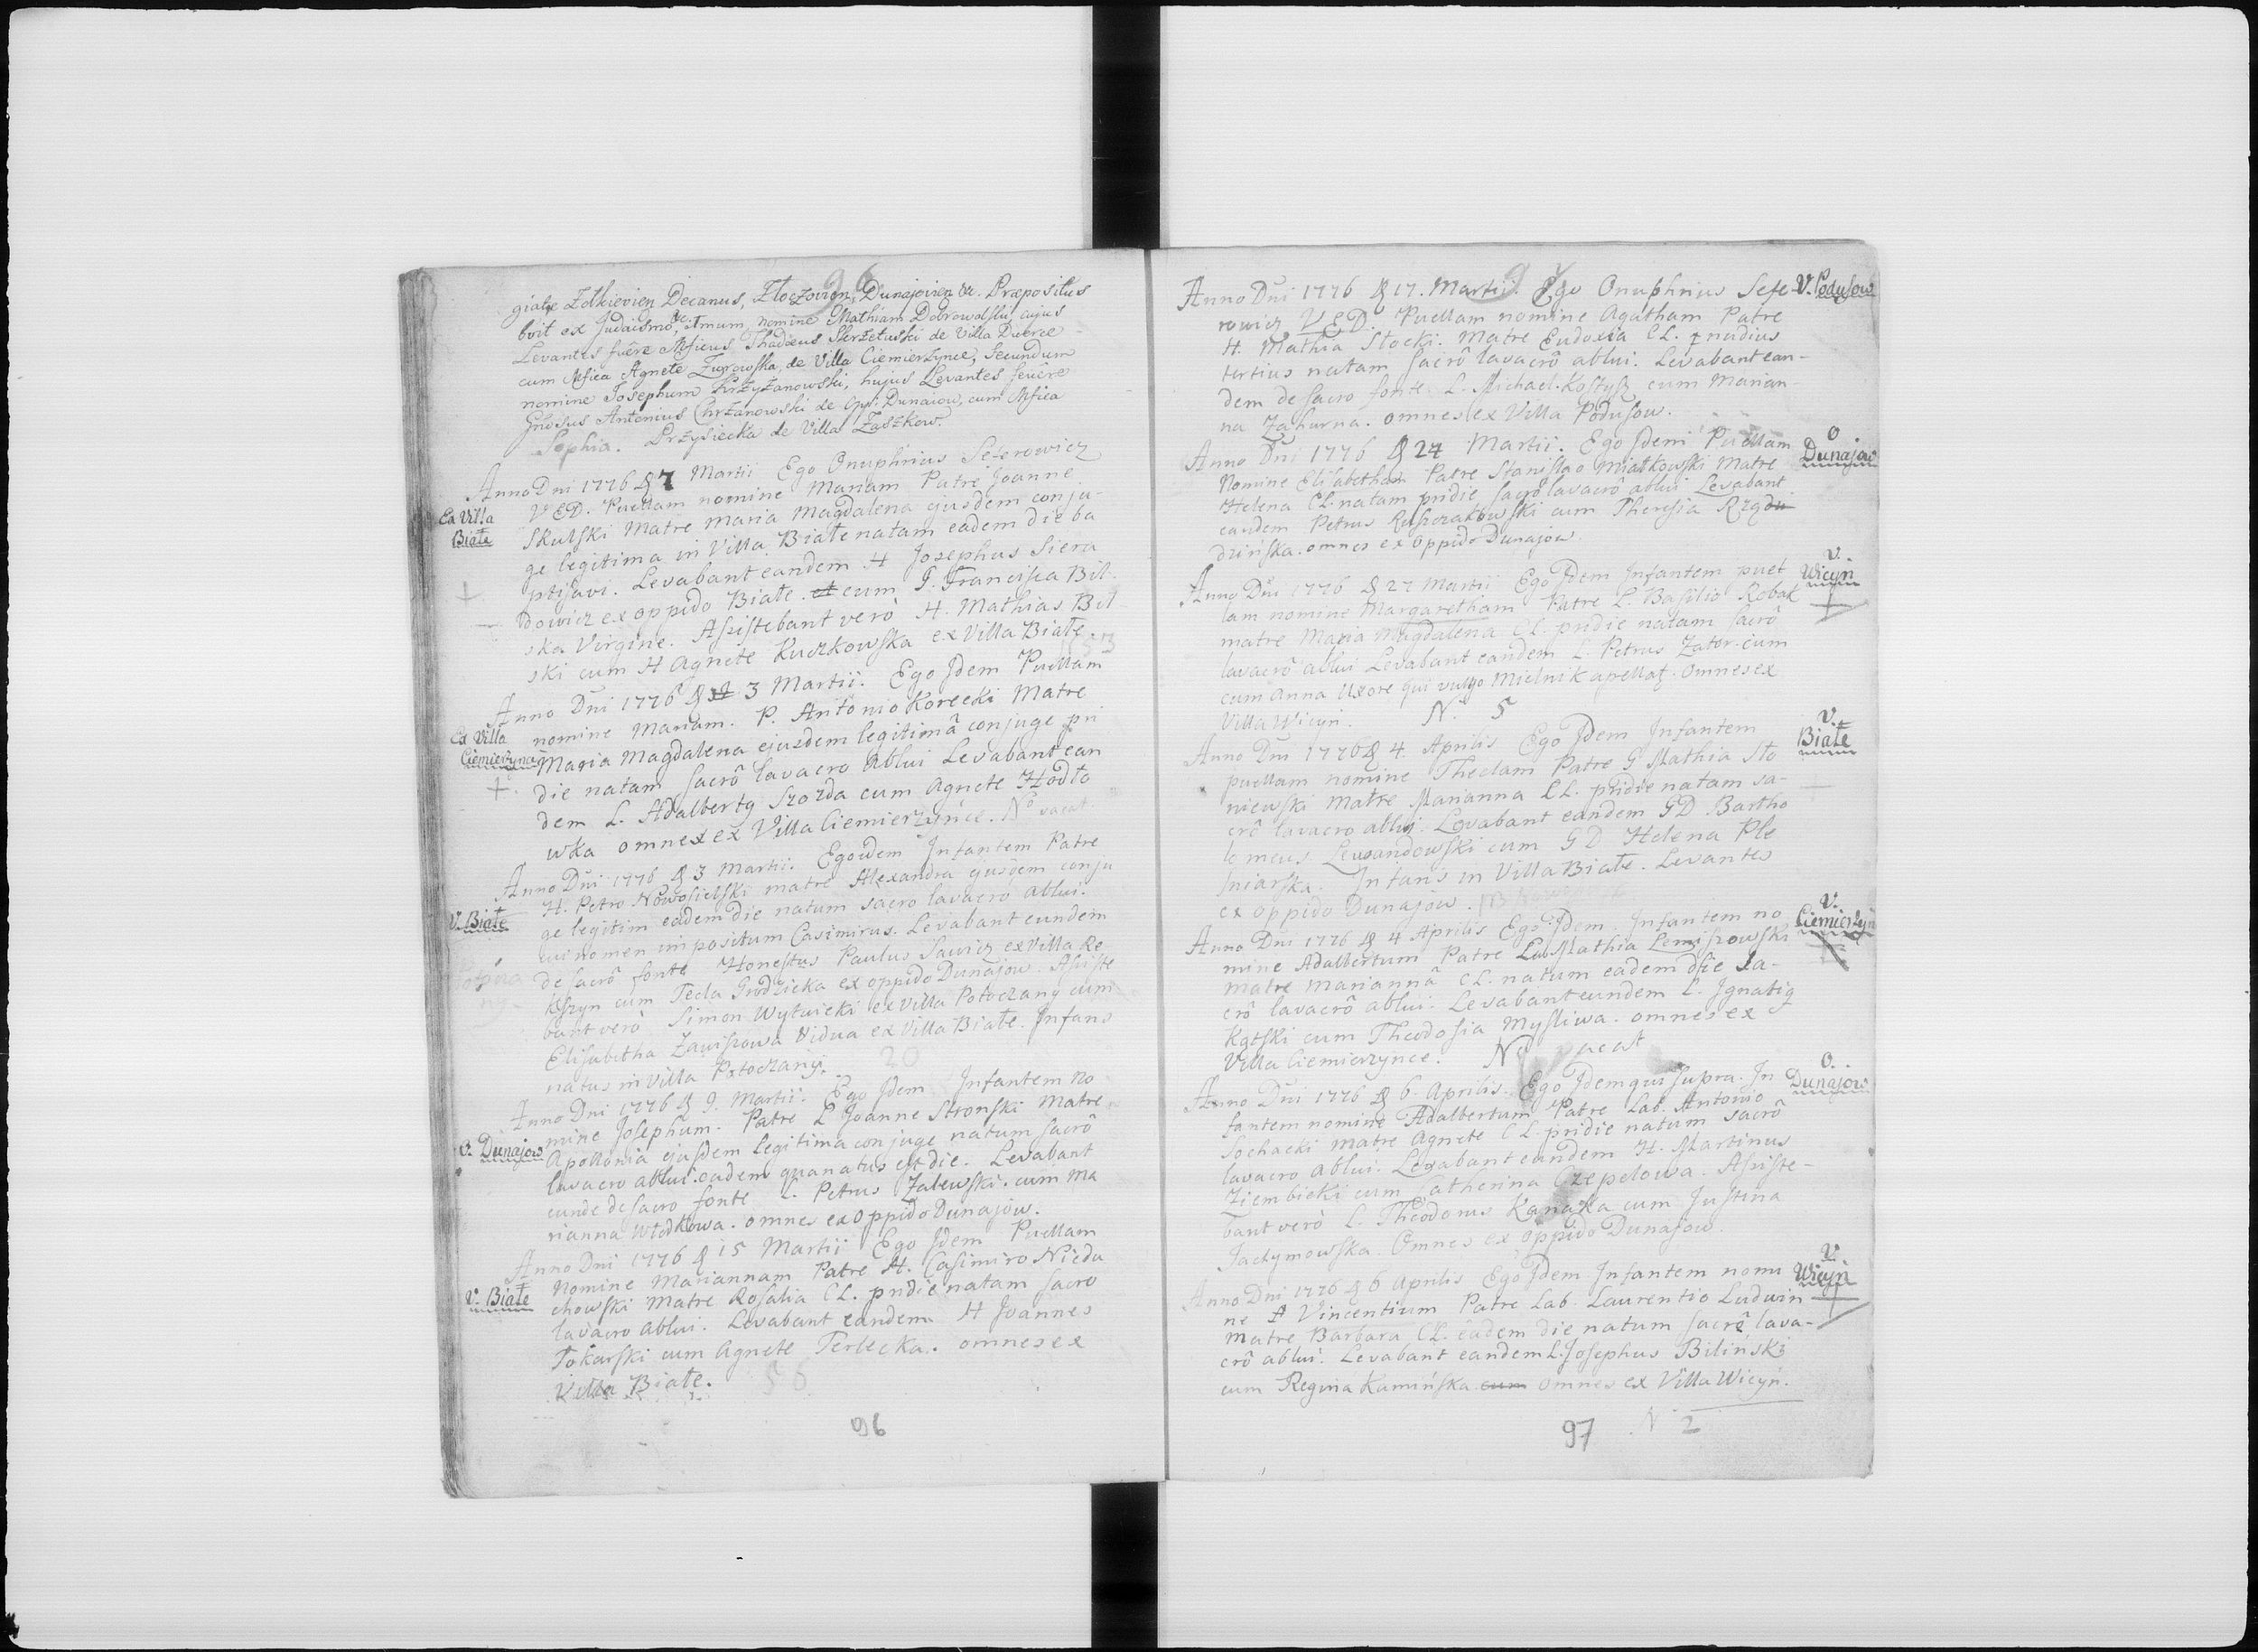 96
giatæ Zołkievien Decanus, Złoczovien, Dunajovien &c. Præpositus
bvit ex Judaismo, &c. 1mum nomine Mathiam Dobrowolski, cujus
Levantes fuêre Mficus Thadæus Skrzetuski de Villa Dworce
cum Mfica Agnete Zurowska, de Villa Ciemierzynce, Secundum
nomine Josephum Krzyżanowski, hujus Levantes fuêre
Gnosus Antonius Chrzanowski de Opp: Dunaiow, cum Mfica
Sophia Przysiecka de Villa Zaszkow.
Anno Dni 1776 d 7 Martii Ego Onuphrius Seferowicz
Ex Villa
Białe
VED. Puellam nomine Mariam Patre Joanne
Skulski Matre Maria Magdalena ejusdem conju-
ge legitima in Villa Białe natam eadem die ba
ptisavi. Levabant eandem H Josephus Siera
dowicz ex oppido Białe. et cum G. Francisca Bil-
ska Virgine. Assistebant verò H. Mathias Bil
ski cum H Agnete Kuczkowska ex Villa Białe.
Anno Dni 1776 d 3 Martii. Ego Jdem Puellam
Ex Villa
Ciemierzyńa
nomine Mariam. P. Antonio Korecki Matre
Maria Magdalena ejusdem legitimâ conjuge pri
die natam Sacrô lavacro ablui Levabant ean
dem L. Adalbertg Szozda cum Agnete Hodło
wka omnes ex Villa Ciemierzyńce. No vacat
Anno Dni 1776 d 3 Martii. Ego idem Infantem Patre
V. Białe
H. Petro Nowosielski matre Alexandra ejusdem conju
ge legitim eadem die natum sacro lavacro ablui.
cui nomen impositum Casimirus. Levabant eundem
de sacrô fonte Honestus Paulus Sawicz ex Villa Re
kszyn cum Tecla Grodzicka ex oppido Dunajow. Assiste
bant verò Simon Wytwicki ex Villa Potoczany cum
Elisabetha Zawiszowa Vidua ex Villa Białe. Infans
natus in Villa Potoczany.
20
Anno Dni 1776 d 9. Martii. Ego Jdem Infantem no
O. Dunajow
mine Josephum. Patre L Joanne Stronski Matre
Apollonia ejusdem legitima conjuge natum sacrô
lavacro ablui. eadem qua natus est die. Levabant
eunde de sacro fonte L. Petrus Zalewski. cum Ma
rianna Włodkowa. omnes ex oppido Dunajow.
Anno Dni 1776 d 15 Martii Ego Jdem Puellam
V. Białe
Nomine Mariannam Patre H. Casimiro Niedu
chowski Matre Rosalia CL. pridie natam sacro
lavacro ablui. Levabant eandem H Joannes
Tokarski cum Agnete Terlecka. omnes ex
Villa Białe.
56
96
Anno Dni 1776 d 17. Martii. Ego Onuphrius Sefe
V. Podusow
rowicz VED. Puellam nomine Agatham Patre
H. Mathia Stocki. Matre Eudoxia CL. nudius
tertius natam sacrô lavacrô ablui. Levabant ean-
dem de sacro fonte L. Michael Kostysz cum Marian-
na Zahurna. omnes ex Villa Podusow.
Anno Dni 1776 d 24 Martii. Ego Jdem Puellam
O
Dunajow
Nomine Elisabetham Patre Stanislao Miałkowski Matre
Helena CL. natam pridie sacrô lavacrô ablui Levabant
eandem Petrus Ruszczakowski cum Theresia Rzą
dzińska. omnes ex Oppido Dunajow.
Anno Dni 1776 d 27 Martii Ego Jdem Infantem puel
V.
Wicyń
lam nomine Margaretham Patre L. Basilio Robak
matre Maria Magdalena CL. pridie natam sacrô
lavacrô ablui Levabant eandem L. Petrus Zator cum
cum Anna Uxore qui vulgo Mielnik apellatg. Omnes ex
Villa Wicyń. No 5
Anno Dni 1776 d 4. Aprilis Ego Jdem Infantem
V.
Białe
puellam nomine Theclam Patre G Mathia Sto
niewski Matre Marianna CL. pridie natam sa-
crô lavacro ablui. Levabant eandem GD Bartho
lomeus Lewandowski cum GD Helena Ple
sniarska. Infans in Villa Białe. Levantes
ex oppido Dunajow.
Anno Dni 1776 d 4 Aprilis Ego Jdem Infantem no
V.
Ciemierzyń
mine Adalbertum Patre Lab Mathia Lemiszowski
matre Mariannâ CL. natum eadem die sa-
crô lavacrô ablui. Levabant eundem L. Jgnatig
Kątski cum Theodosia Mysliwa. omnes ex
Villa Ciemierzynce. No vacat
Anno Dni 1776 d 6. Aprilis. Ego Jdem qui Supra. In
O.
Dunajow
fantem nomine Adalbertum Patre Lab. Antonio
Sochacki matre Agnete CL. pridie natum sacrô
lavacro ablui. Levabant eundem H. Martinus
Ziembicki cum Catherina Czepelowa. Assiste-
bant verò L. Theodorus Kanaka cum Justina
Jachymowska. Omnes ex oppido Dunajow.
Anno Dni 1776 d 6 Aprilis Ego Jdem Infantem nomi
V.
Wicyń
ne Vincentium Patre Lab. Laurentio Ludwin
Matre Barbara CL. eadem die natum sacrô lava-
crô ablui. Levabant eandem L. Josephus Biliński
cum Regina Kamińska cum omnes ex Villa Wicyń.
N 2
97